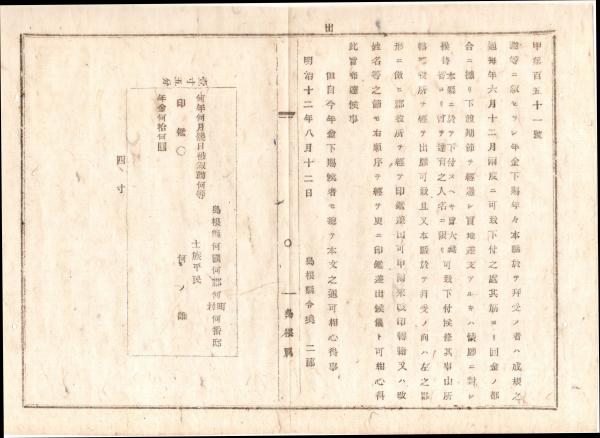 甲第百五十一號
勲等ニ叙セラレ年金下賜年々本縣於テ拜受ノ者ハ成規之
通毎年六月十二月兩度ニ可致下付之處其筋ヨリ回金ノ都
合ニ據リ下渡期節ヲ經過シ實地遷支アルキハ懇願ニ對シ
本縣ニ於テ下付スヘキ旨大藏
省ヨリ達有之人名ニ限リ可致下付候條其事由所
轄郡役所ヲ經テ出願可致且又本縣於テ拜受ノ向ハ左之雛
形ニ倣ヒ郡役所ヲ經テ印鑑差出可申將來改印轉籍又ハ改
姓名等之節モ右順序ヲ經テ更ニ印鑑差出候儀ト可相心得
此旨布達候事
但自今年金下賜候者モ總テ本文之通可相心得事
明治十二年八月十二日
島根縣令境二郎
島根縣
島根縣何國何郡何町村何番邸
士族平民
何ノ誰
何年何月幾日被叙勲何等
印鑑〇
年金何拾何圓
四寸
出